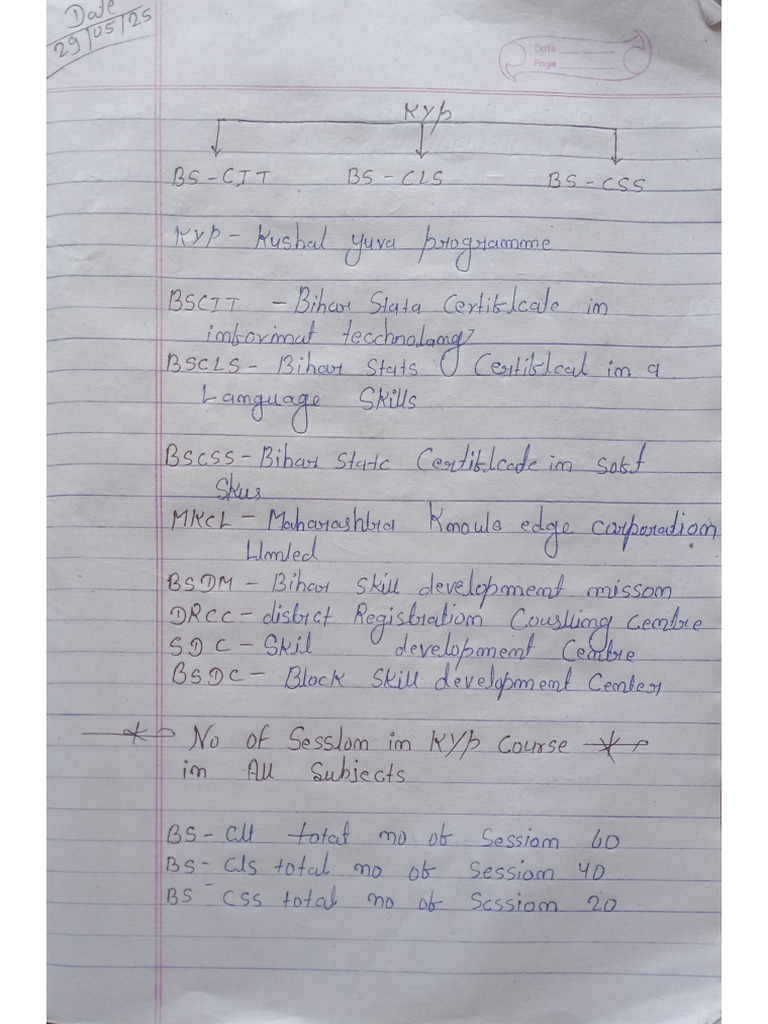 Date
29/05/25
Date
Page
KYP
BS-CIT BS-CLS BS-CSS
KYP - Kushal yuva programme
BSCIT - Bihar Stata Certifclcate in
imformat tecchnolamg7
BSCLS - Bihar Stats Certiflcal in a
Language Skills
BSCSS - Bihar Statc Certiflcade in soft
Skus
MKCL - Maharashtra Knowle edge carporation
LImled
BSDM - Bihar skill development missom
DRCC - distrct Registration Couslling centre
SDC - Skil development Centre
BSDC - Block skill development Center
No of Session in KYP Course
in All Subjects
BS - CIt totat no of Session 60
BS - Cls total no of Session 40
BS - CSS total no of Scssion 20